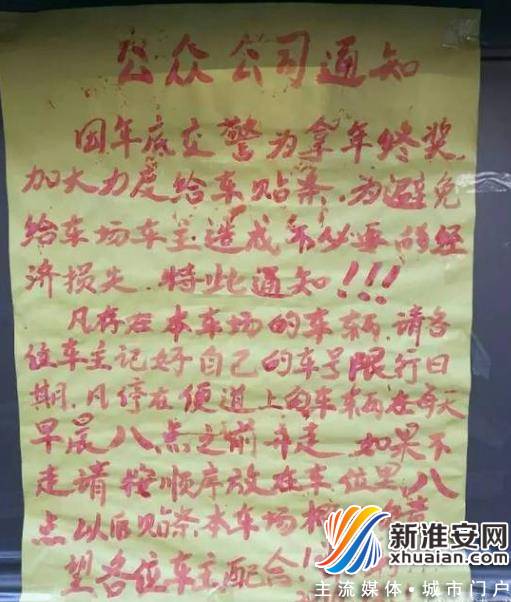 公众公司通知
因年底交警为拿年终奖,
加大力度给车贴条,为避免
给车场车主造成不必要的经
济损失.特此通知!!!
凡存在本车场的车辆,请各
位车主记好自己的车号限行日
期,凡停在便道上的车辆在每天
早晨八点之前开走.如果不
走请按顺序放在车位里,八
点以后贴条,本车场
望各位车主配合!
新淮安网
xhuaian.com
主流媒体·城市门户